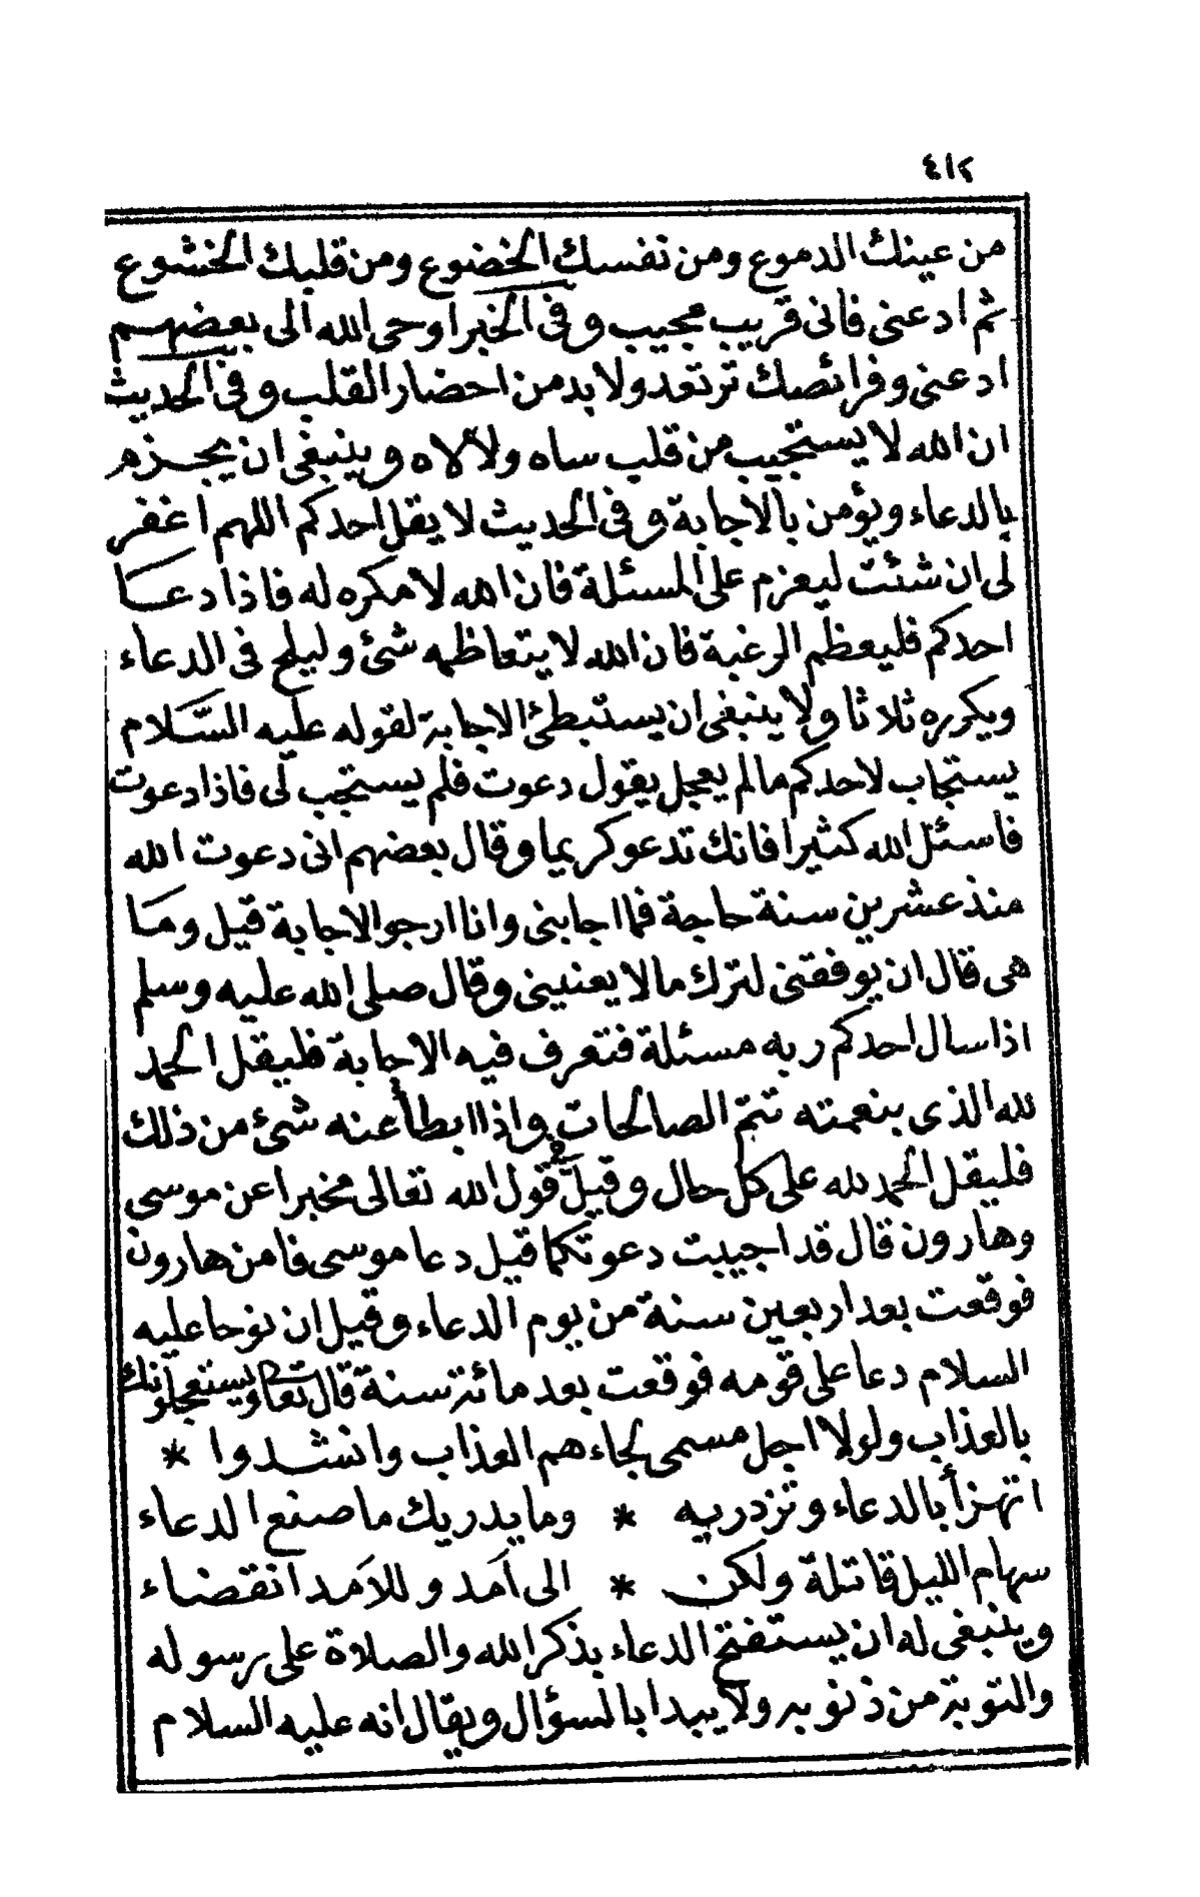 ٤١٢
من عينك الدموع ومن نفسك الخضوع ومن قلبك الخشوع
ثم ادعنى فانى قريب مجيب وفى الخبر اوحى الله الى بعضهم
ادعنى وفرائصك ترتعد ولا بد من احضار القلب وفى الحديث
ان الله لا يستجيب من قلب ساه ولا لاه وينبغى ان يجزم
بالدعاء ويؤمن بالاجابة وفى الحديث لا يقل احدكم اللهم اغفر
لى ان شئت ليعزم على المسئلة فان الله لا مكره له فاذا دعا
احدكم فليعظم الرغبة فان الله لا يتعاظمه شئ وليلح فى الدعاء
ويكرره ثلاثا ولا ينبغى ان يستبطئ الاجابة لقوله عليه السّلام
يستجاب لاحدكم ما لم يعجل يقول دعوت فلم يستجب لى فاذا دعوت
فاسئل الله كثيرا فانك تدعو كريما وقال بعضهم انى دعوت الله
منذ عشرين سنة حاجة فما اجابنى وانا ارجو الاجابة قيل وما
هى قال ان يوفقنى لترك ما لا يعنينى وقال صلى الله عليه وسلم
اذا سال احدكم ربه مسئلة فتعرف فيه الاجابة فليقل الحمد
لله الذى بنعمته تتم الصالحات واذا ابطأ عنه شئ من ذلك
فليقل الحمد لله على كل حال وقيل قول الله تعالى مخبرا عن موسى
وهارون قال قد اجيبت دعوتكما قيل دعا موسى فامن هارون
فوقعت بعد اربعين سنة من يوم الدعاء وقيل ان نوحا عليه
السلام دعا على قومه فوقعت بعد مائة سنة قال تعا ويستعجلونك
بالعذاب ولولا اجل مسمى لجاءهم العذاب وانشدوا *
اتهزأ بالدعاء وتزدريه * وما يدريك ما صنع الدعاء
سهام الليل قاتلة ولكن * الى أمد وللامد انقضاء
وينبغى له ان يستفتح الدعاء بذكر الله والصلاة على رسوله
والتوبة من ذنوبه ولا يبدا بالسؤال ويقال انه عليه السلام